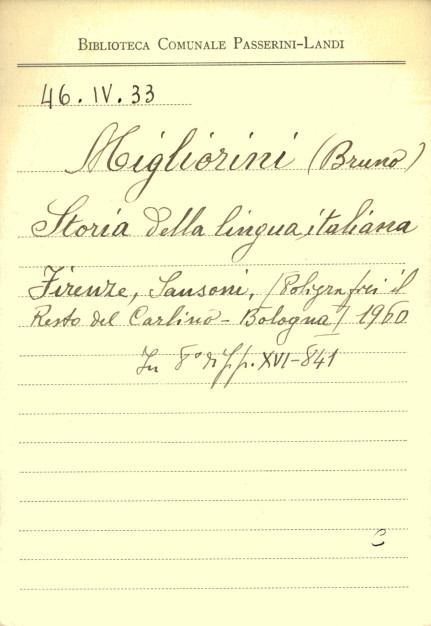 BIBLIOTECA COMUNALE PASSERINI-LANDI
46.IV.33
Migliorini (Bruno)
Storia della lingua italiana
Firenze, Sansoni, (Poligrafici il
Resto del Carlino - Bologna) 1960
In 8° di pp. XVI-841
C